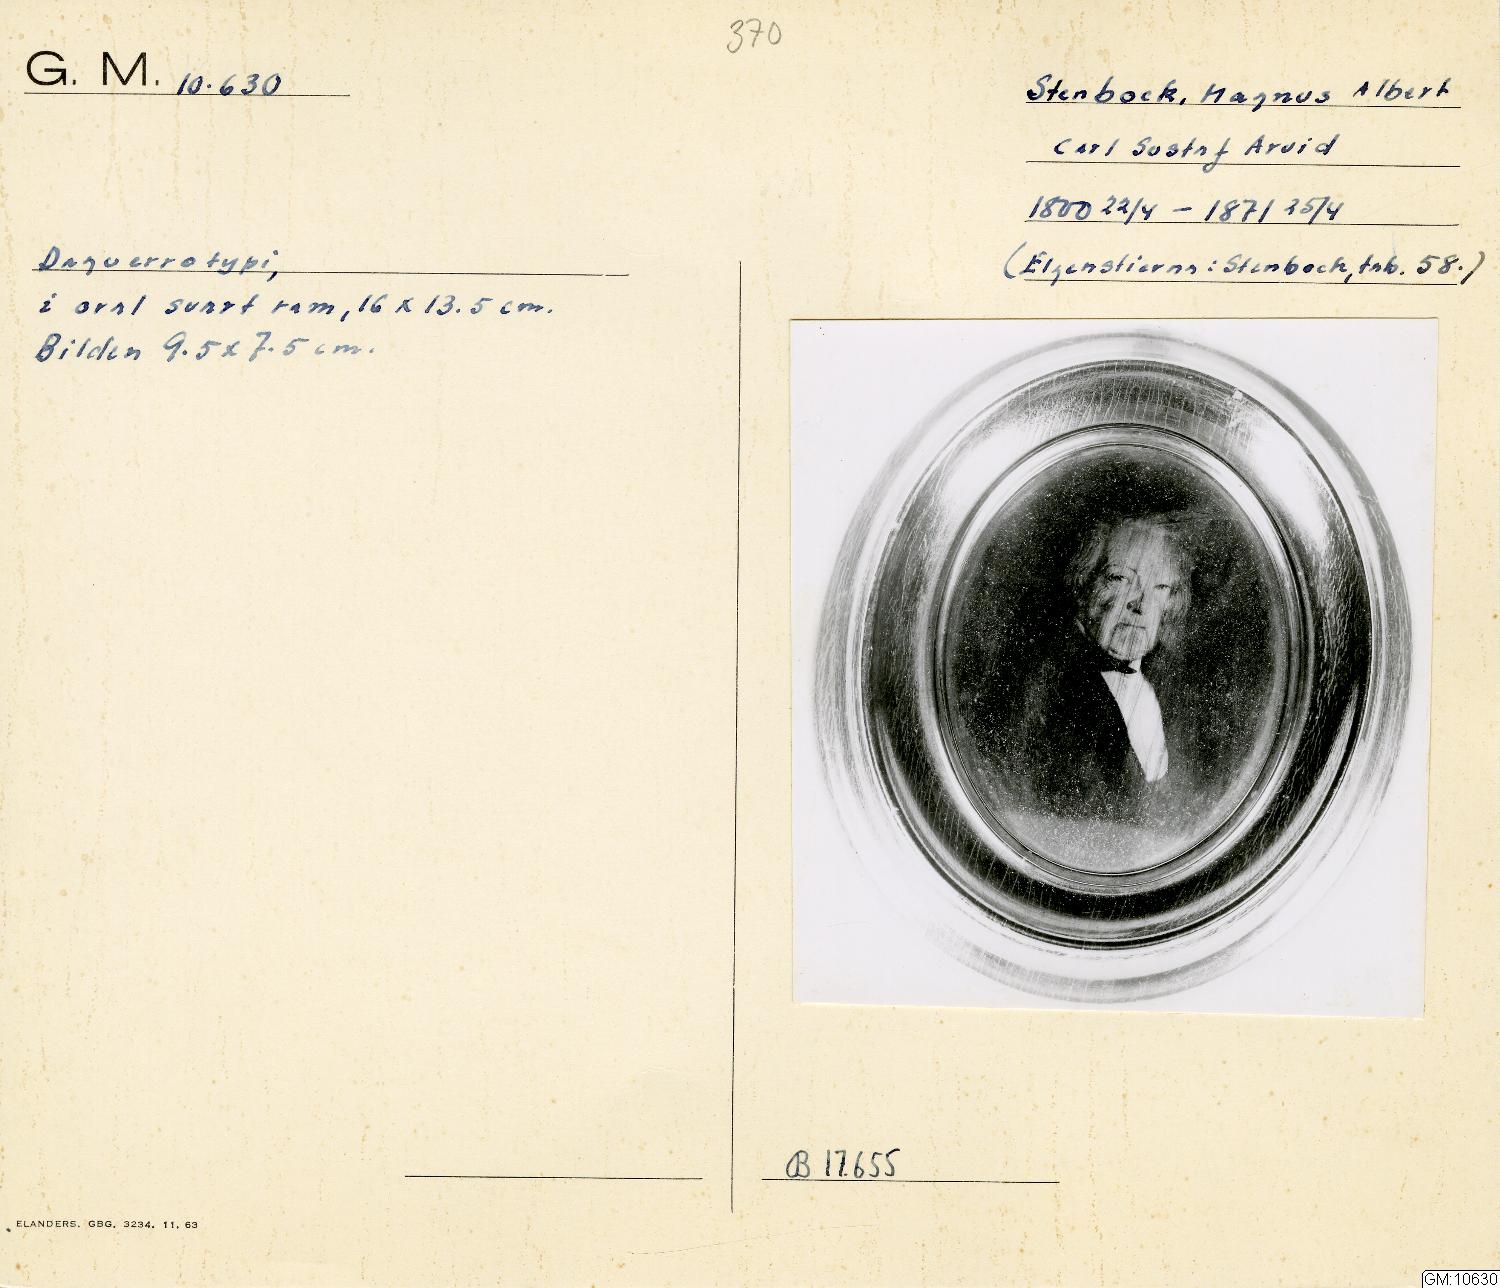 370
G. M. 10.630
Stenbock, Magnus Albert
Carl Gustaf Arvid
1800 22/4 – 1871 25/4
(Elgenstierna: Stenbock, tab. 58.)
Daguerrotypi,
i oval svart ram, 16 x 13.5 cm.
Bilden 9.5 x 7.5 cm.
B 17.655
ELANDERS. GBG. 3234. 11. 63
GM:10630